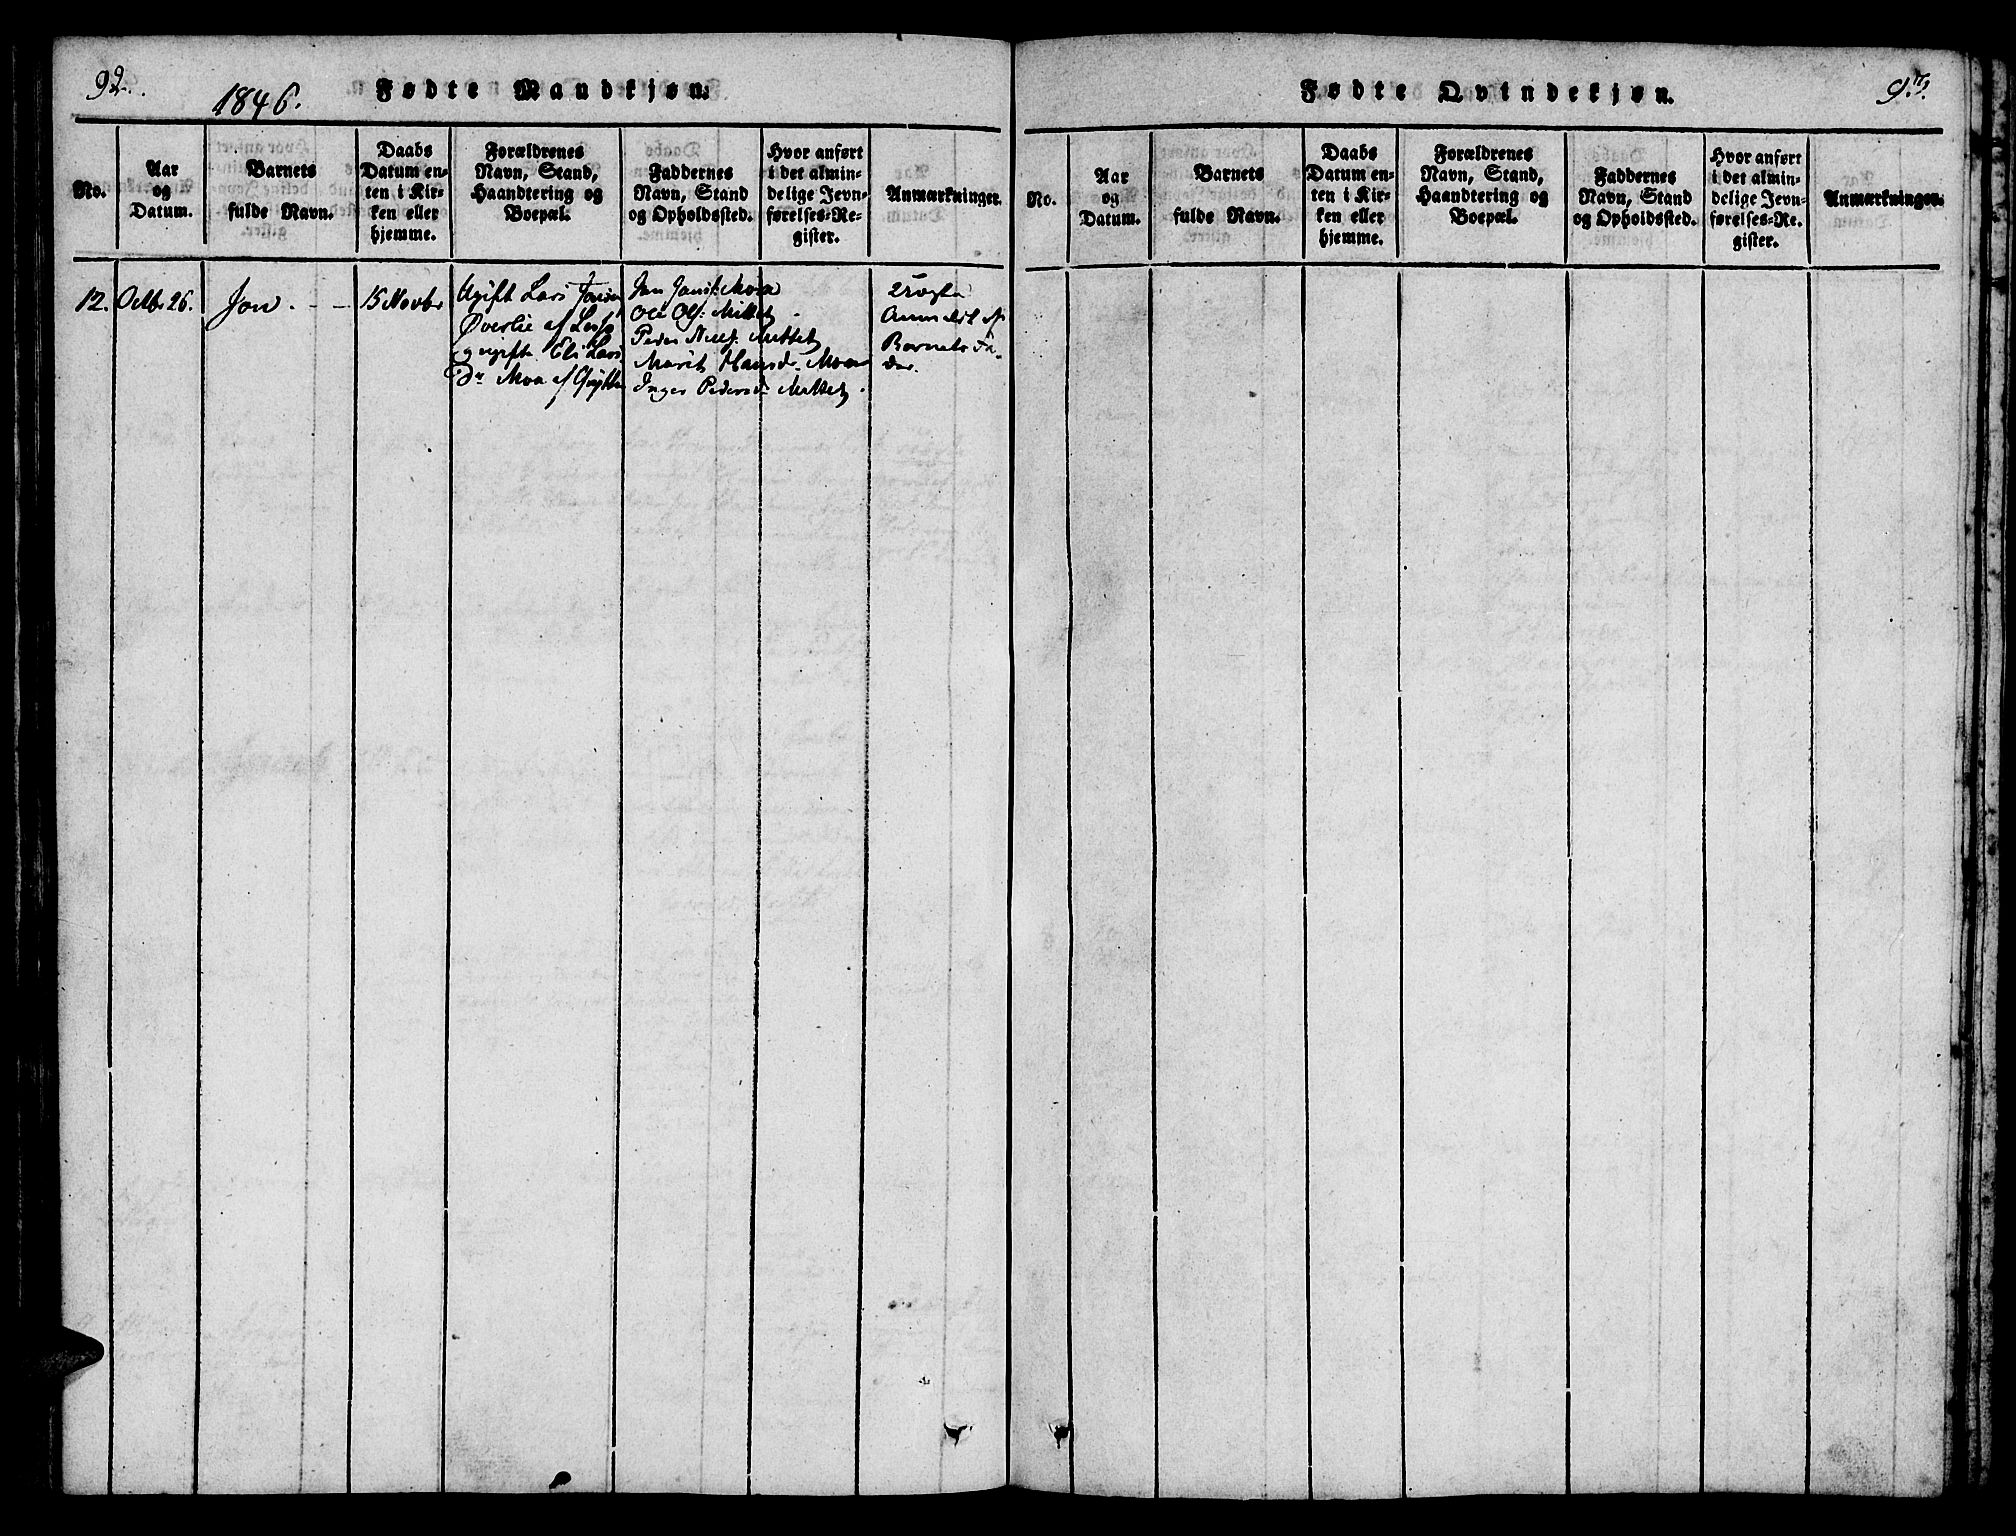 92.
1846.
Fødte Mandkjøn.
No.
Aar
og
Datum.
Barnets
fulde Navn.
Daabs
Datum en-
ten i Kir-
ken eller
hjemme.
Forældrenes
Navn, Stand,
Haandtering og
Boepæl.
Faddernes
Navn, Stand
og Opholdssted.
Hvor anført
i det almin-
delige Jevn-
førelses-Re-
gister.
Anmærkninger.
12.
Octbr 26.
Jon.
15 Novbr
Ugift Lars Jonsen
Øverlie af
ugifte Eli Lars
Dr Moa af
Jon Moa
Ole Ols: Mittet
Peder Mittet
Marit Hansdr. Moa
Inger Pedersdr Mittet.
2 uægte
Anmeldt af
Barnets Fa-
der.
Fødte Qvindekjøn.
93.
No.
Aar
og
Datum.
Barnets
fulde Navn.
Daabs
Datum en-
ten i Kir-
ken eller
hjemme.
Forældrenes
Navn, Stand,
Haandtering og
Boepæl.
Faddernes
Navn, Stand
og Opholdssted.
Hvor anført
i det almin-
delige Jevn-
førelses-Re-
gister.
Anmærkninger.